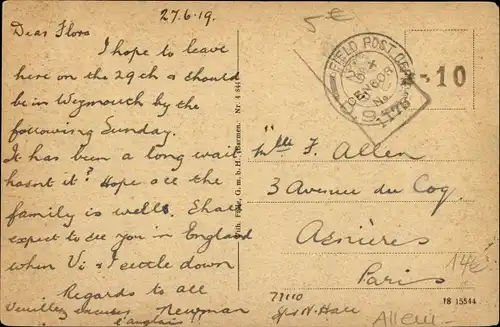 27.6.19.
Dear Flora
I hope to leave
here on the 29th & should
be in Weymouth by the
following Sunday.
It has been a long wait
hasn't it? Hope all the
family is well. Shall
expect to see you in England
when Vi & I settle down
Regards to all
Veuillez excuser Newman
l'anglais
5€
FIELD POST OFFICE
10
Nr. 4 844
G. m. b. H., Barmen.
Mlle F. Allen
3 Avenue du Coq
Asnières
Paris
14€
18 15544
77110
Spr N. Hall
Allem